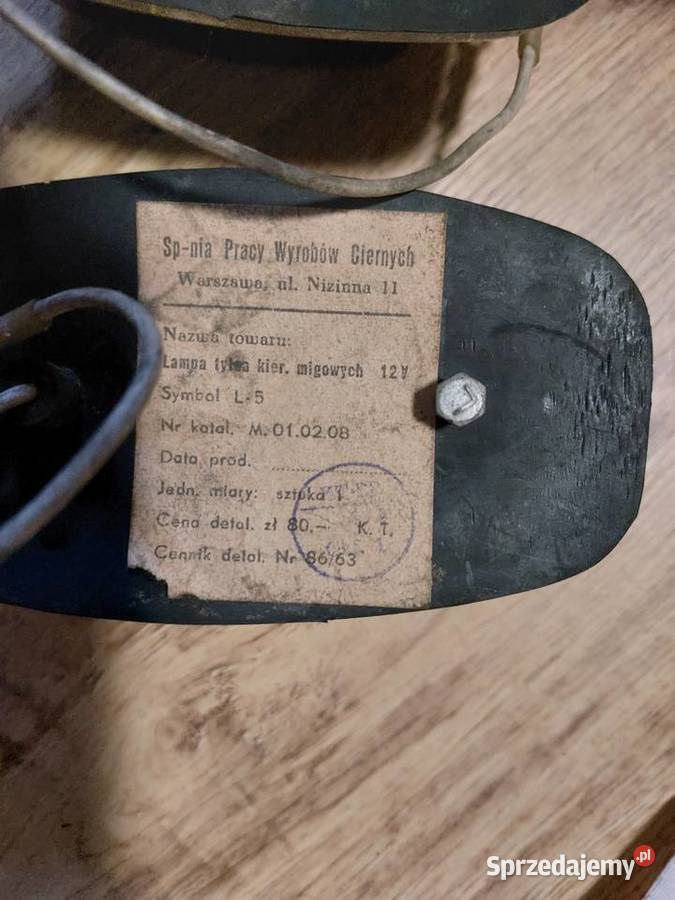 Sp-nia Pracy Wyrobów Ciernych
Warszawa, ul. Nizinna 11
Nazwa towaru:
Lampa tylna kier. migowych 12V
Symbol L-5
Nr katal. M.01.02.08
Data prod. ....................
Jedn. miary: sztuka 1
Cena detal. zł 80,— K. T.
Cennik detal. Nr 86/63
Sprzedajemy.pl